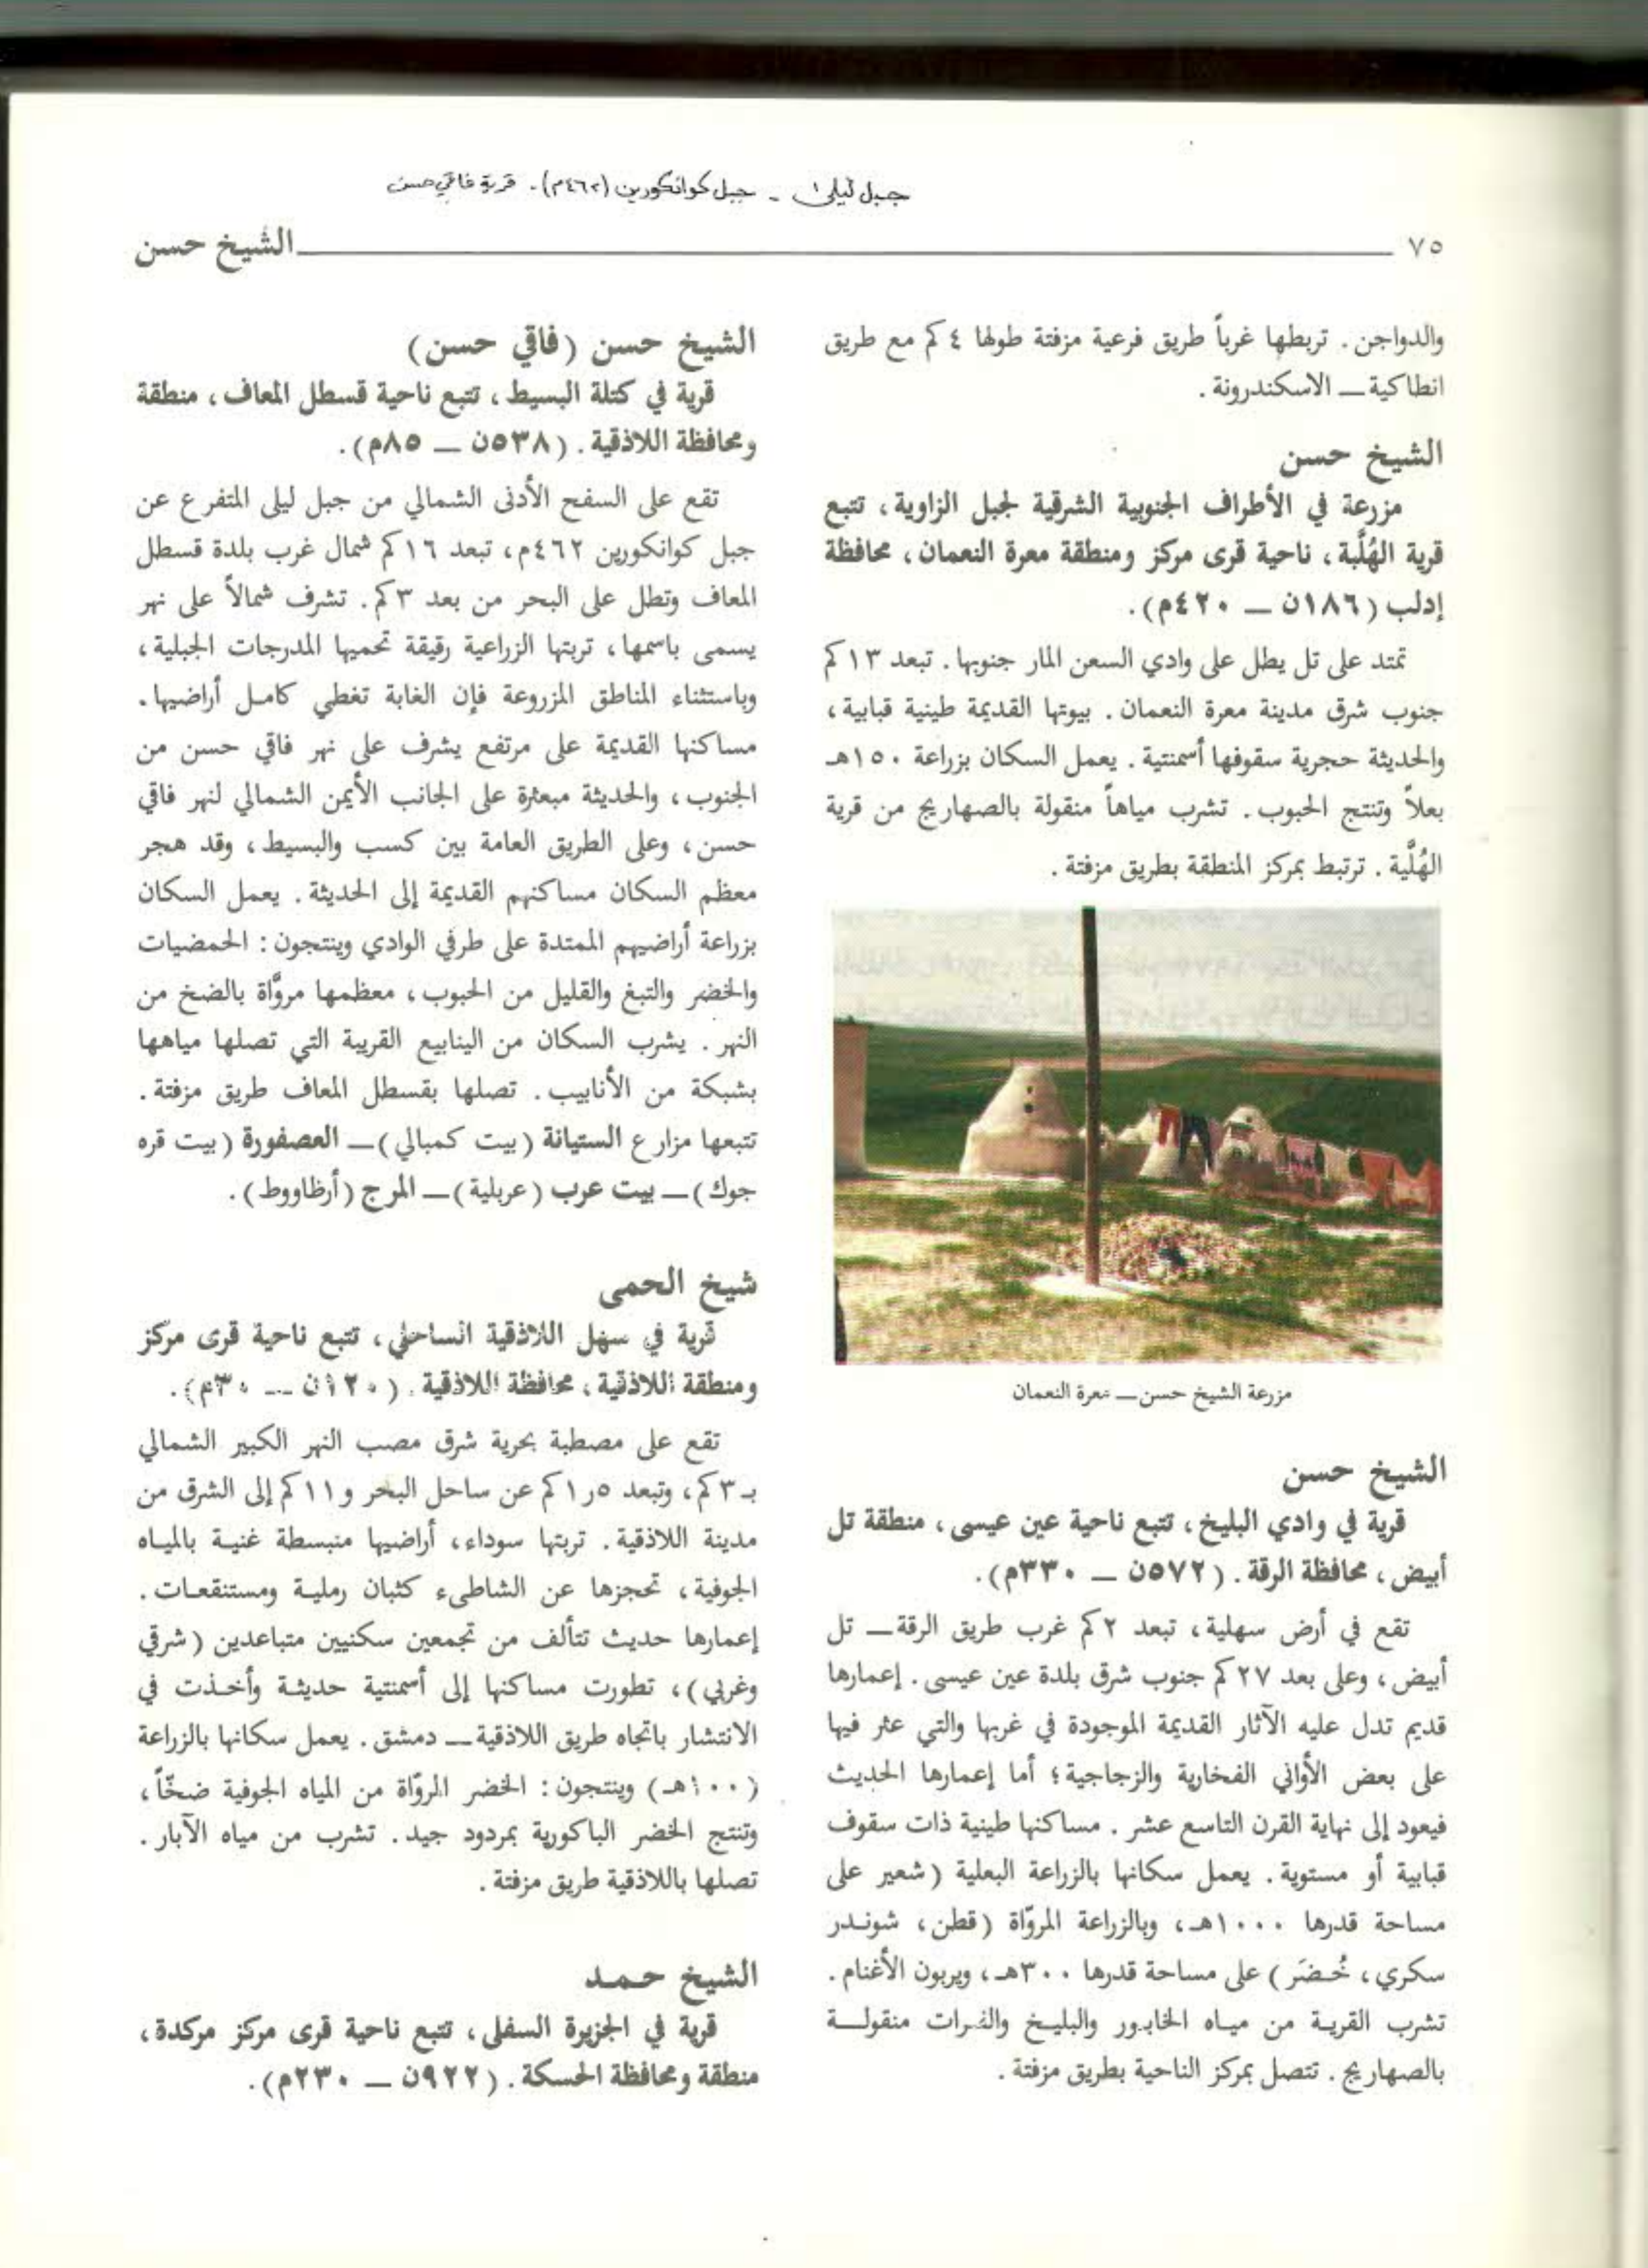 جبل ليلى - جبل كوانكورين (٤٦٢م). قرية فاقي حسن
٧٥
الشيخ حسن
والدواجن. تربطها غرباً طريق فرعية مزفتة طولها ٤ كم مع طريق
انطاكية ــ الاسكندرونة.
الشيخ حسن
مزرعة في الأطراف الجنوبية الشرقية لجبل الزاوية، تتبع
قرية الهُلَّبة، ناحية قرى مركز ومنطقة معرة النعمان، محافظة
إدلب (١٨٦ن ــ ٤٢٠م).
تمتد على تل يطل على وادي السعن المار جنوبها. تبعد ١٣ كم
جنوب شرق مدينة معرة النعمان. بيوتها القديمة طينية قبابية،
والحديثة حجرية سقوفها أسمنتية. يعمل السكان بزراعة ١٥٠هـ
بعلاً وتنتج الحبوب. تشرب مياهاً منقولة بالصهاريج من قرية
الهُلَّية. ترتبط بمركز المنطقة بطريق مزفتة.
مزرعة الشيخ حسن ــ معرة النعمان
الشيخ حسن
قرية في وادي البليخ، تتبع ناحية عين عيسى، منطقة تل
أبيض، محافظة الرقة. (٥٧٢ن ــ ٣٣٠م).
تقع في أرض سهلية، تبعد ٢ كم غرب طريق الرقة ــ تل
أبيض، وعلى بعد ٢٧ كم جنوب شرق بلدة عين عيسى. إعمارها
قديم تدل عليه الآثار القديمة الموجودة في غربها والتي عثر فيها
على بعض الأواني الفخارية والزجاجية؛ أما إعمارها الحديث
فيعود إلى نهاية القرن التاسع عشر. مساكنها طينية ذات سقوف
قبابية أو مستوية. يعمل سكانها بالزراعة البعلية (شعير على
مساحة قدرها ١٠٠٠هـ، وبالزراعة المروّاة (قطن، شوندر
سكري، خُضَر) على مساحة قدرها ٣٠٠هـ، ويربون الأغنام.
تشرب القرية من مياه الخابور والبليخ والفرات منقولة
بالصهاريج. تتصل بمركز الناحية بطريق مزفتة.
الشيخ حسن (فاقي حسن)
قرية في كتلة البسيط، تتبع ناحية قسطل المعاف، منطقة
ومحافظة اللاذقية. (٥٣٨ن ــ ٨٥م).
تقع على السفح الأدنى الشمالي من جبل ليلى المتفرع عن
جبل كوانكورين ٤٦٢م، تبعد ١٦ كم شمال غرب بلدة قسطل
المعاف وتطل على البحر من بعد ٣ كم. تشرف شمالاً على نهر
يسمى باسمها، تربتها الزراعية رقيقة تحميها المدرجات الجبلية،
وباستثناء المناطق المزروعة فإن الغابة تغطي كامل أراضيها.
مساكنها القديمة على مرتفع يشرف على نهر فاقي حسن من
الجنوب، والحديثة مبعثرة على الجانب الأيمن الشمالي لنهر فاقي
حسن، وعلى الطريق العامة بين كسب والبسيط، وقد هجر
معظم السكان مساكنهم القديمة إلى الحديثة. يعمل السكان
بزراعة أراضيهم الممتدة على طرفي الوادي وينتجون: الحمضيات
والخضر والتبغ والقليل من الحبوب، معظمها مروَّاة بالضخ من
النهر. يشرب السكان من الينابيع القريبة التي تصلها مياهها
بشبكة من الأنابيب. تصلها بقسطل المعاف طريق مزفتة.
تتبعها مزارع الستيانة (بيت كمبالي) ــ العصفورة (بيت قره
جوك) ــ بيت عرب (عربلية) ــ المرج (أرظاووط).
شيخ الحمى
قرية في سهل اللاذقية الساحلي، تتبع ناحية قرى مركز
ومنطقة اللاذقية، محافظة اللاذقية. (١٢٠ن ــ ٣٠م).
تقع على مصطبة بحرية شرق مصب النهر الكبير الشمالي
بـ٣ كم، وتبعد ١٫٥ كم عن ساحل البحر و١١ كم إلى الشرق من
مدينة اللاذقية. تربتها سوداء، أراضيها منبسطة غنية بالمياه
الجوفية، تحجزها عن الشاطىء كثبان رملية ومستنقعات.
إعمارها حديث تتألف من تجمعين سكنيين متباعدين (شرقي
وغربي)، تطورت مساكنها إلى أسمنتية حديثة وأخذت في
الانتشار باتجاه طريق اللاذقية ــ دمشق. يعمل سكانها بالزراعة
(١٠٠هـ) وينتجون: الخضر المروّاة من المياه الجوفية ضخّاً،
وتنتج الخضر الباكورية بمردود جيد. تشرب من مياه الآبار.
تصلها باللاذقية طريق مزفتة.
الشيخ حمد
قرية في الجزيرة السفلى، تتبع ناحية قرى مركز مركدة،
منطقة ومحافظة الحسكة. (٩٢٢ن ــ ٢٣٠م).